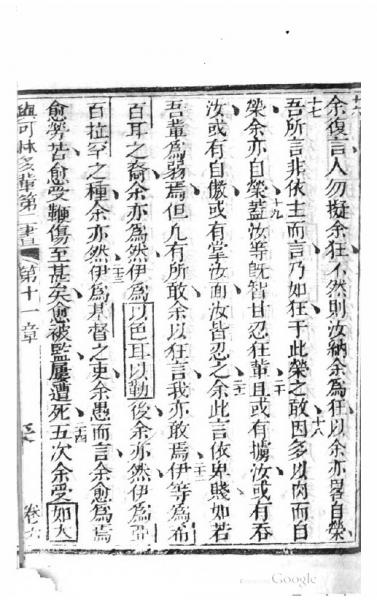 十六余復言人勿擬余狂不然則汝納余為狂以余亦畧自榮
十七吾所言非依主而言乃如狂于此榮之敢十八因多以肉而自
榮余亦自榮十九蓋汝等既智甘忍狂輩二十且或有擄汝或有吞
汝或有自傲或有掌汝面汝皆忍之二一余此言依卑賤如若
吾輩為弱焉但凡有所敢余以狂言我亦敢焉二二伊等為希
百耳之裔余亦為然伊為以色耳以勒後余亦然伊為亞
百拉罕之種余亦然二三伊為基督之吏余愚而言余愈為焉
愈勞苦愈受鞭傷至甚矣愈被監屢遭死二四五次余受如大
與可林多輩第二書 第十一章 卷六
Google